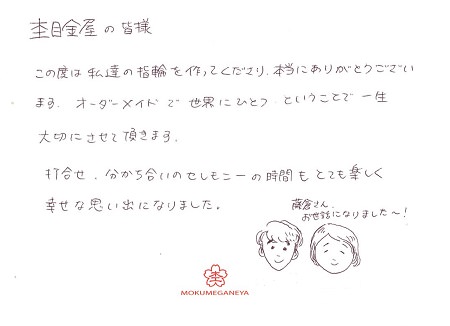 杢目金屋の皆様
この度は私達の指輪を作ってくださり、本当にありがとうござい
ます。オーダーメイドで世界にひとつということで一生
大切にさせて頂きます。
打合せ、分かち合いのセレモニーの時間もとても楽しく
幸せな思い出になりました。
藤倉さん、
お世話になりました〜!
MOKUMEGANEYA